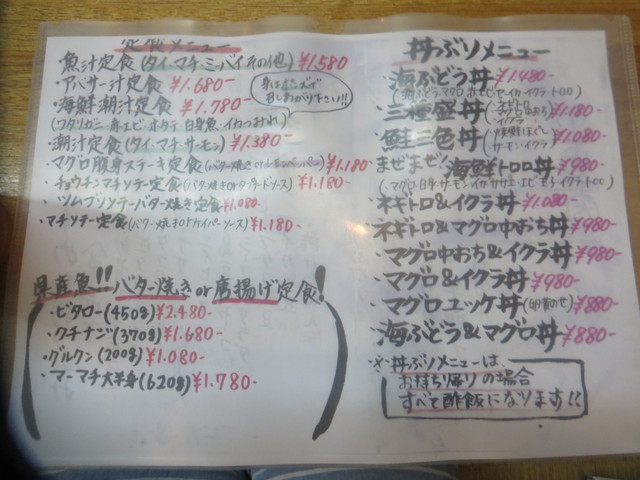 定食メニュー
・魚汁定食(タイ・マチ・ミーバイその他) ¥1.580
・アバサー汁定食 ¥1.680-
・海鮮潮汁定食 ¥1.780-
(ワタリガニ・赤エビ・ホタテ・白身魚・イカつみれ)
身はポン酢で
召しあがり下さい!!
・潮汁定食(タイ・マチ・サーモン) ¥1.380-
・マグロ腹身ステーキ定食(バター焼きorレモンペッパー) ¥1.180-
・チョウチンマチソテー定食(バター焼きorタルタルソース) ¥1.180-
・ツムブリソテーバター焼き定食 ¥1.080-
・マチソテー定食(バター焼きorケイパーソース) ¥1.180-
県産魚!! バター焼きor唐揚げ定食!
・ビタロー(450g) ¥2.480-
・クチナジ(370g) ¥1.680-
・グルクン(200g) ¥1.080-
・マーマチ大半身(620g) ¥1.780-
丼ぶりメニュー
・海ぶどう丼 ¥1.480-
(海ぶどう・マグロ・ホエビ・セーイカ・イクラ・トロロ)
・三種盛丼(ネギトロ・マグロ中おち・イクラ) ¥1.180-
・鮭三色丼(炙鮭ほぐし・サーモン・イクラ) ¥1.080-
・まぜまぜ!海鮮トロロ丼 ¥980-
(・マグロ・白身・サーモン・イカ・サザエ・エビ・玉子・イクラ・トロロ)
・ネギトロ&イクラ丼 ¥1.080-
・ネギトロ&マグロ中おち丼 ¥980-
・マグロ中おち&イクラ丼 ¥980-
・マグロ&イクラ丼 ¥980-
・マグロユッケ丼(卵黄のせ) ¥880-
・海ぶどう&マグロ丼 ¥880-
※丼ぶりメニューは、
お持ち帰りの場合
すべて酢飯になります!!